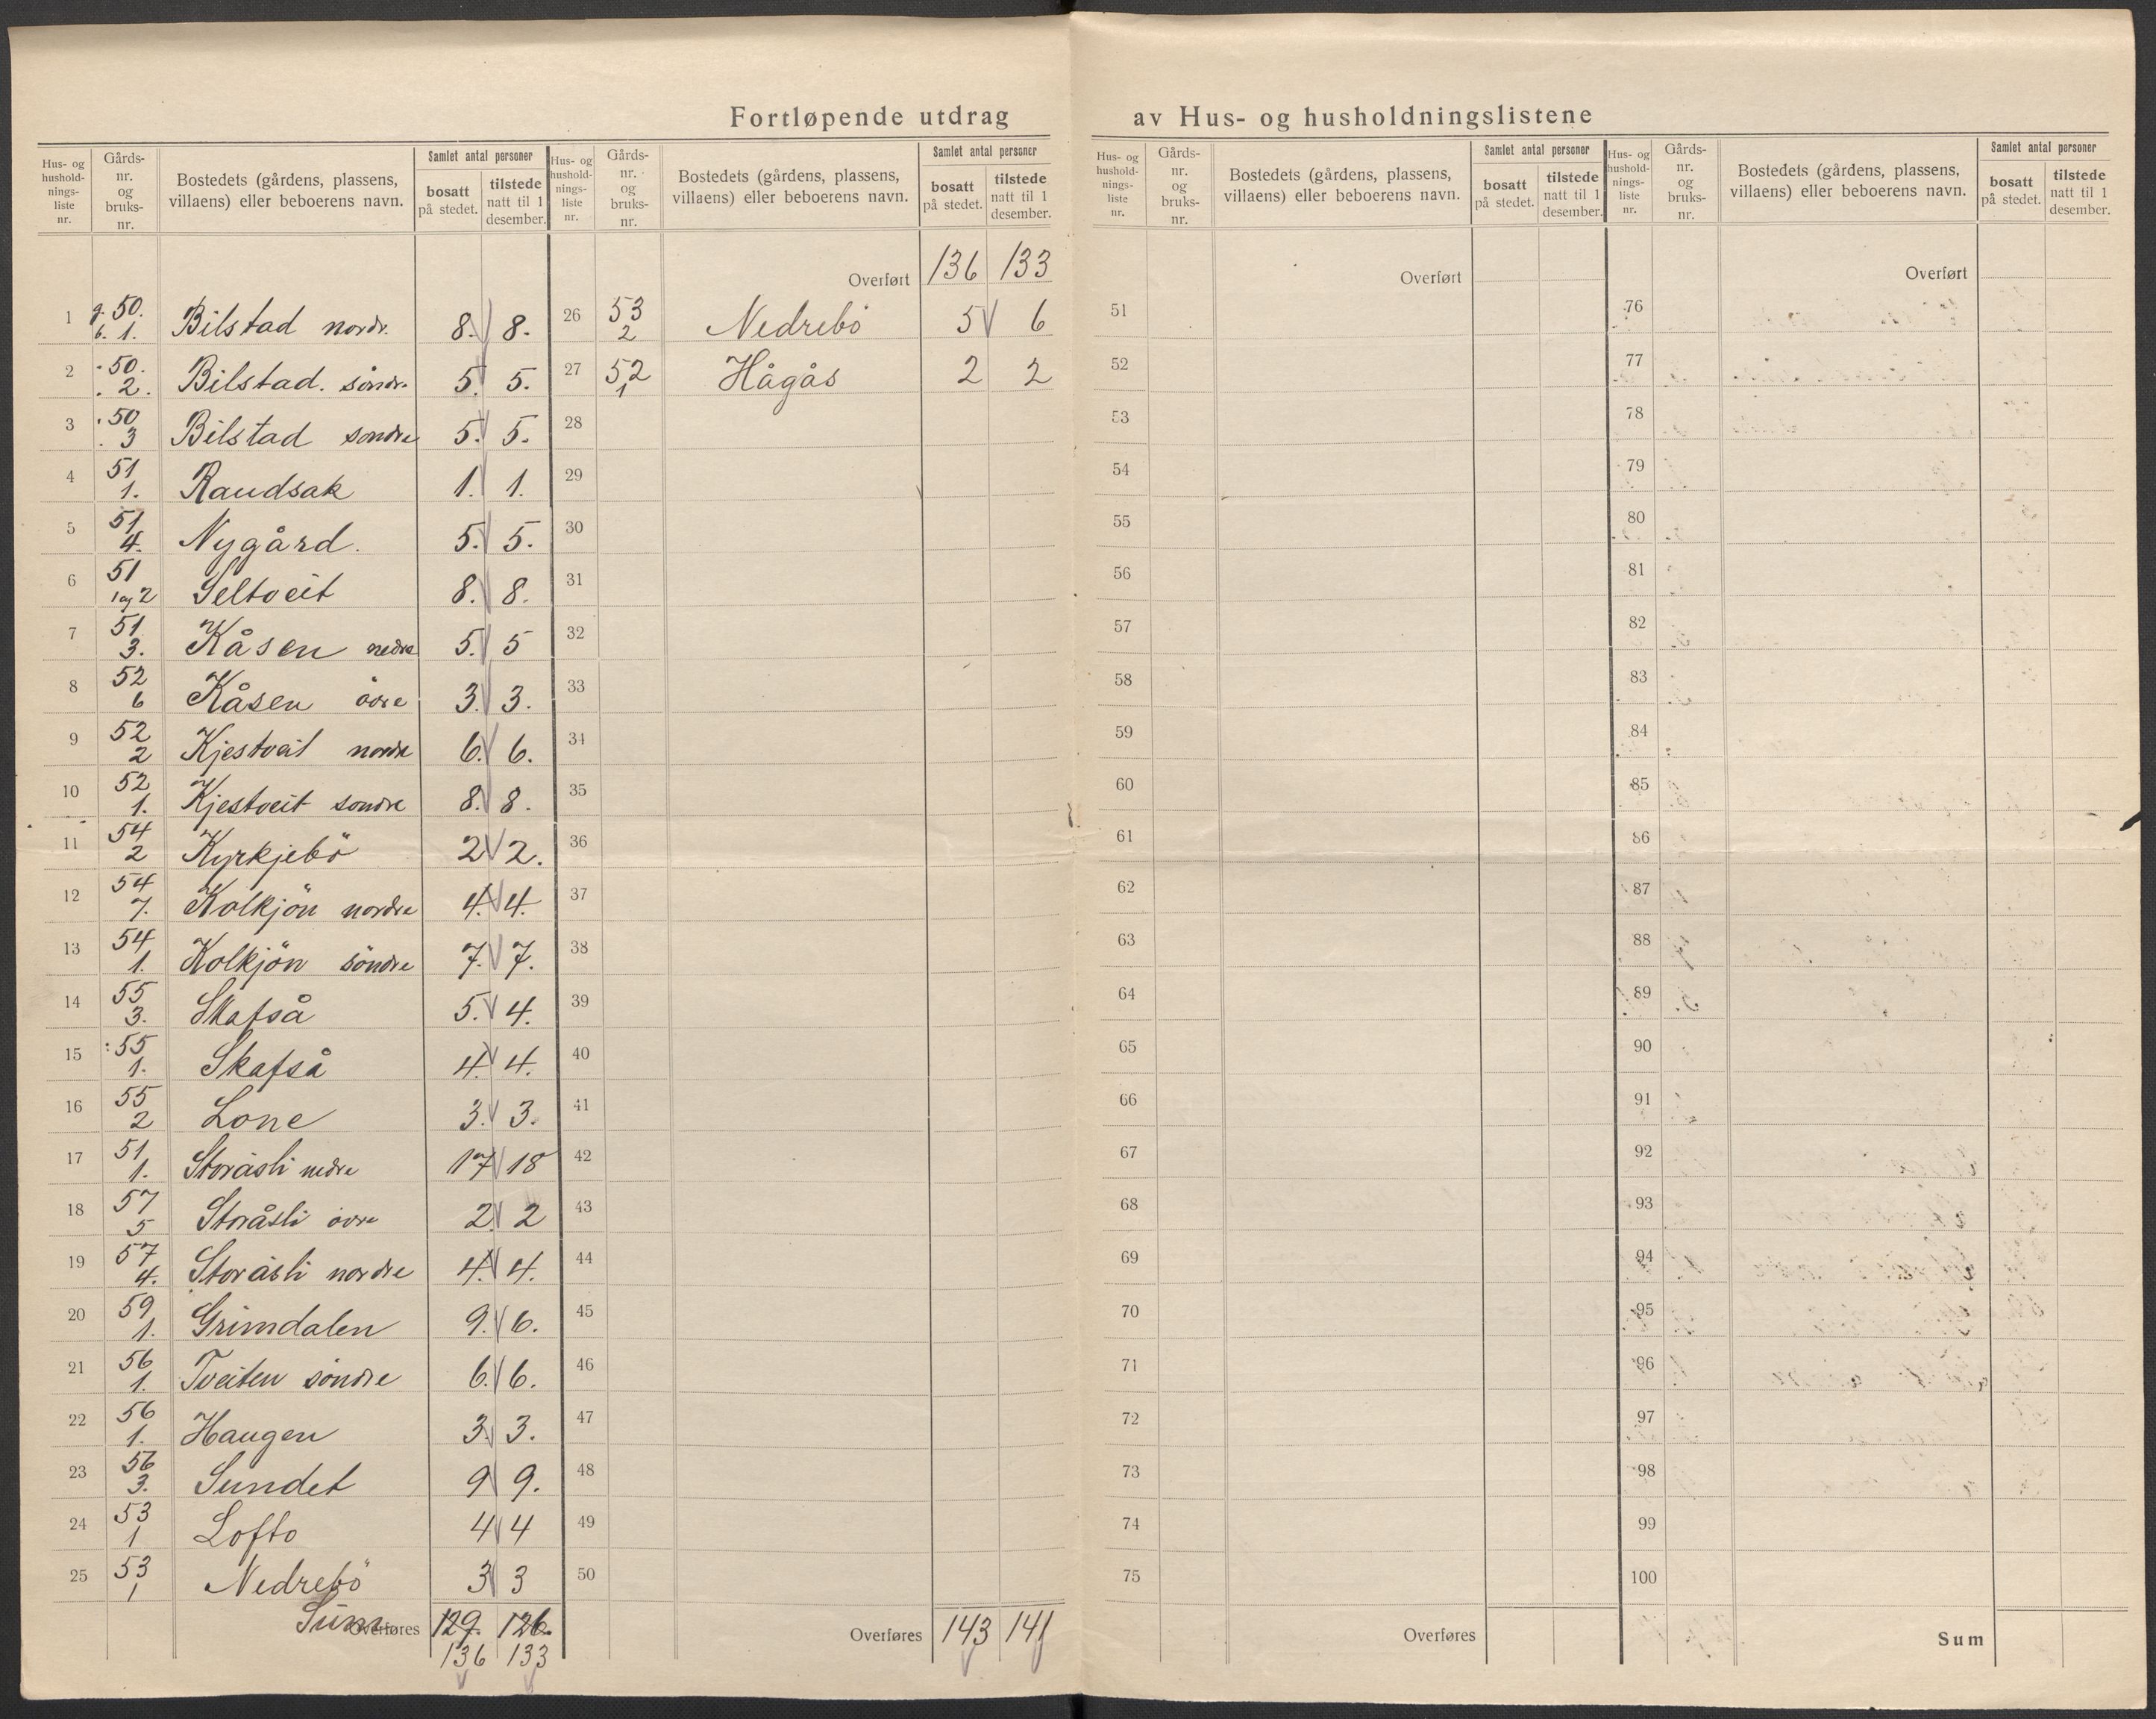 Fortløpende utdrag av Hus- og husholdningslistene
Hus- og husholdningsliste nr. | Gårds-nr. og bruks-nr. | Bostedets (gårdens, plassens, villaens) eller beboerens navn. | Samlet antal personer | bosatt på stedet. | tilstede natt til 1 desember.
1 g. 50. b. 1. Bilstad nordr. 8. 8.
2 50. 2. Bilstad. söndr. 5. 5.
3 50 3 Bilstad söndre 5. 5.
4 51 1. Raudsak 1. 1.
5 51 4. Nygård. 5. 5.
6 51 1 og 2 Seltveit 8. 8.
7 51 3. Kåsen nedre 5. 5
8 52 6 Kåsen övre 3. 3.
9 52 2 Kjestveit nordre 6. 6.
10 52 1. Kjestveit sondre 8. 8.
11 54 2 Kyrkjebö 2 2.
12 54 7. Kolkjön nordre 4. 4.
13 54 1. Kolkjön söndre 7. 7.
14 55 3. Skafså 5. 4.
15 55 1. Skafså 4. 4.
16 55 2 Lone 3. 3.
17 51 1. Storåsli nedre 17 18
18 57 5 Storåsli övre 2 2
19 57 4. Storåsli nordre 4. 4.
20 59 1. Grimdalen 9. 6.
21 56 1. Tveiten söndre 6. 6.
22 56 1. Haugen 3 3.
23 56 3. Sundet 9 9.
24 53 1 Lofto 4 4
25 53 1 Nedrebö 3 3
Sum Overføres 129. 126.
136 133
Hus- og husholdningsliste nr. | Gårds-nr. og bruks-nr. | Bostedets (gårdens, plassens, villaens) eller beboerens navn. | Samlet antal personer | bosatt på stedet. | tilstede natt til 1 desember.
Overført 136 133
26 53 2 Nedrebö 5 6
27 52 1 Hågås 2 2
28
29
30
31
32
33
34
35
36
37
38
39
40
41
42
43
44
45
46
47
48
49
50
Overføres 143 141
Hus- og husholdningsliste nr. | Gårds-nr. og bruks-nr. | Bostedets (gårdens, plassens, villaens) eller beboerens navn. | Samlet antal personer | bosatt på stedet. | tilstede natt til 1 desember.
Overført
51
52
53
54
55
56
57
58
59
60
61
62
63
64
65
66
67
68
69
70
71
72
73
74
75
Overføres
Hus- og husholdningsliste nr. | Gårds-nr. og bruks-nr. | Bostedets (gårdens, plassens, villaens) eller beboerens navn. | Samlet antal personer | bosatt på stedet. | tilstede natt til 1 desember.
Overført
76
77
78
79
80
81
82
83
84
85
86
87
88
89
90
91
92
93
94
95
96
97
98
99
100
Sum